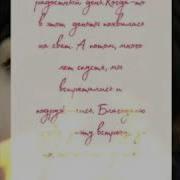 радостный день. Когда-то
в этот день ты появилась
на свет. А потом, много
лет спустя, мы
встретились и
Благодарю
эту встречу